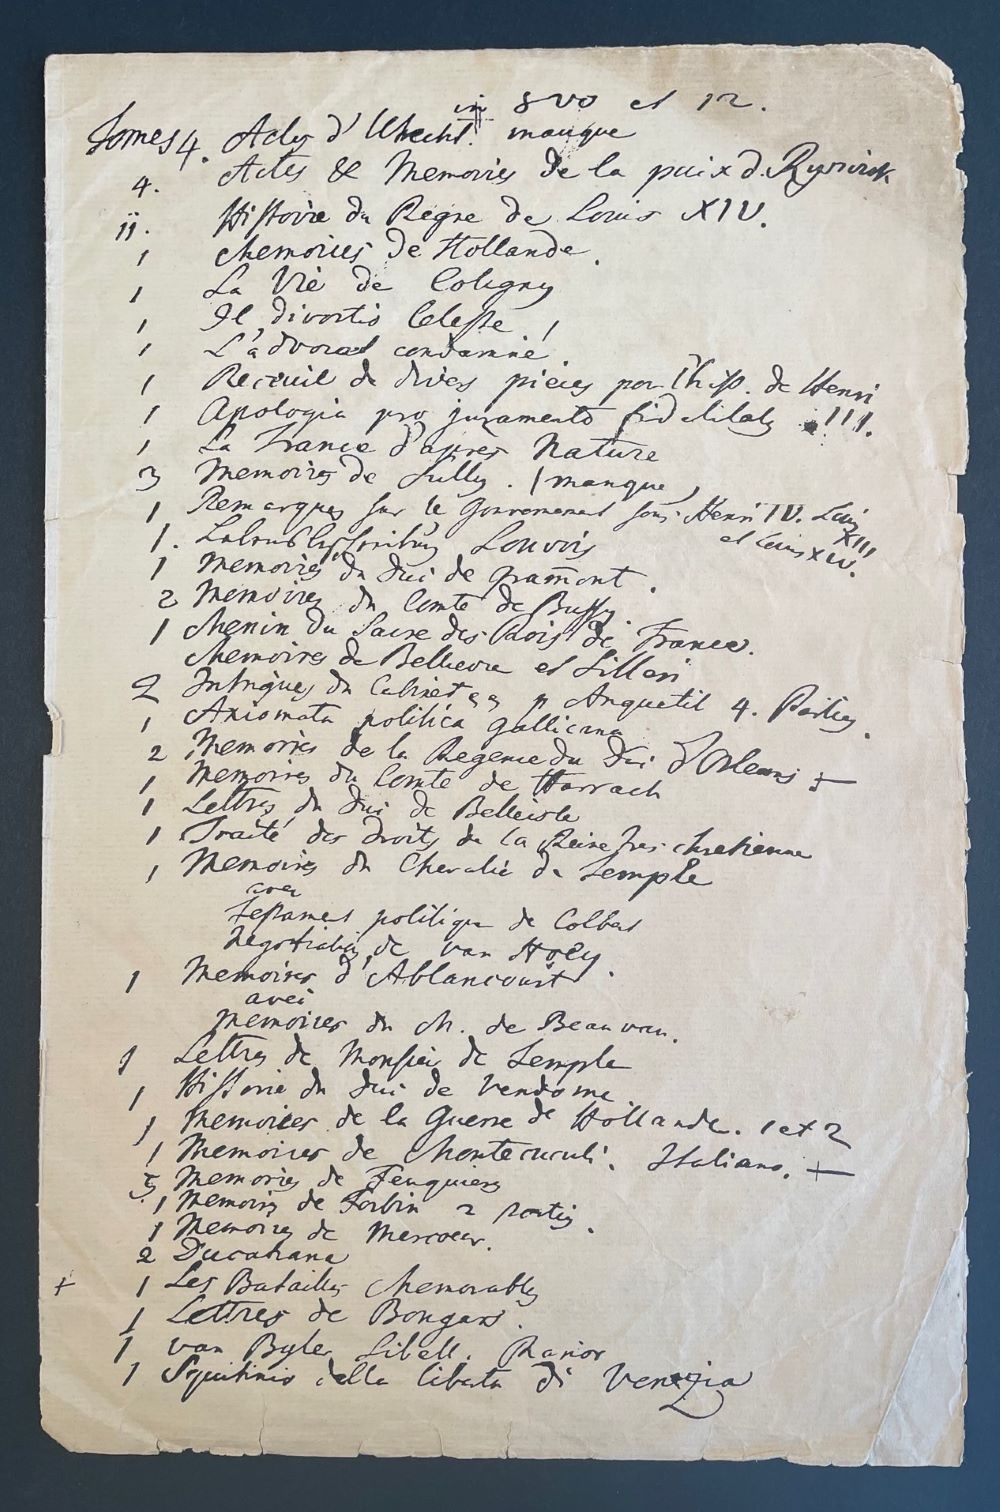 in 8vo et 12.
Tomes 4. Actes d'Utrecht. manque
4. Actes & Memoires de la paix d. Ryswick
ii. Histoire du Regne de Louis XIV.
1 Memoires de Hollande.
1 La Vie de Coligny
1 Il divortio Celeste
1 L'advocat condamné.
1 Recueil de divers pieces pour l'hist. de Henri
III.
1 Apologia pro juramento fidelitatis
1 La France d'apres Nature
3 Memoires de Sully. 1 manque
1 Remarques sur le Gouvernement sous Henri IV. Louis
XIII
et Louis XIV.
1. Louvois
1 Memoires du Duc de Grammont.
2 Memoires du Comte de Bussy.
1 Menin du Sacre des Rois de France.
Memoires de Bellievre et Silleri
2 Intrigues du Cabinet p Anquetil 4. Parties.
1 Axiomata politica gallicana
2 Memoires de la Regence du Duc d'Orleans +
1 Memoires du Comte de Harrach
1 Lettres du Duc de Belleisle
1 Traité des droits de la Reine tres chretienne
1 Memoires du Chevalier de Temple
avec
Testament politique de Colbert
Negotiations de van Hoey.
1 Memoires d'Ablancourt
avec
Memoires du M. de Beauvau.
1 Lettres de Monsieur de Temple
1 Histoire du Duc de Vendome
1 Memoires de la Guerre de Hollande. 1 et 2
1 Memoires de Montecuculi. Italiano. +
5 Memoires de Feuquieres
1 Memoires de Forbin 2 parties.
1 Memoires de Mercoeur.
2 Ducatiana
+ 1 Les Batailles Memorables
1 Lettres de Bongars.
1 van Byler Libell. Rarior
1 Squitinio della liberta di Venezia